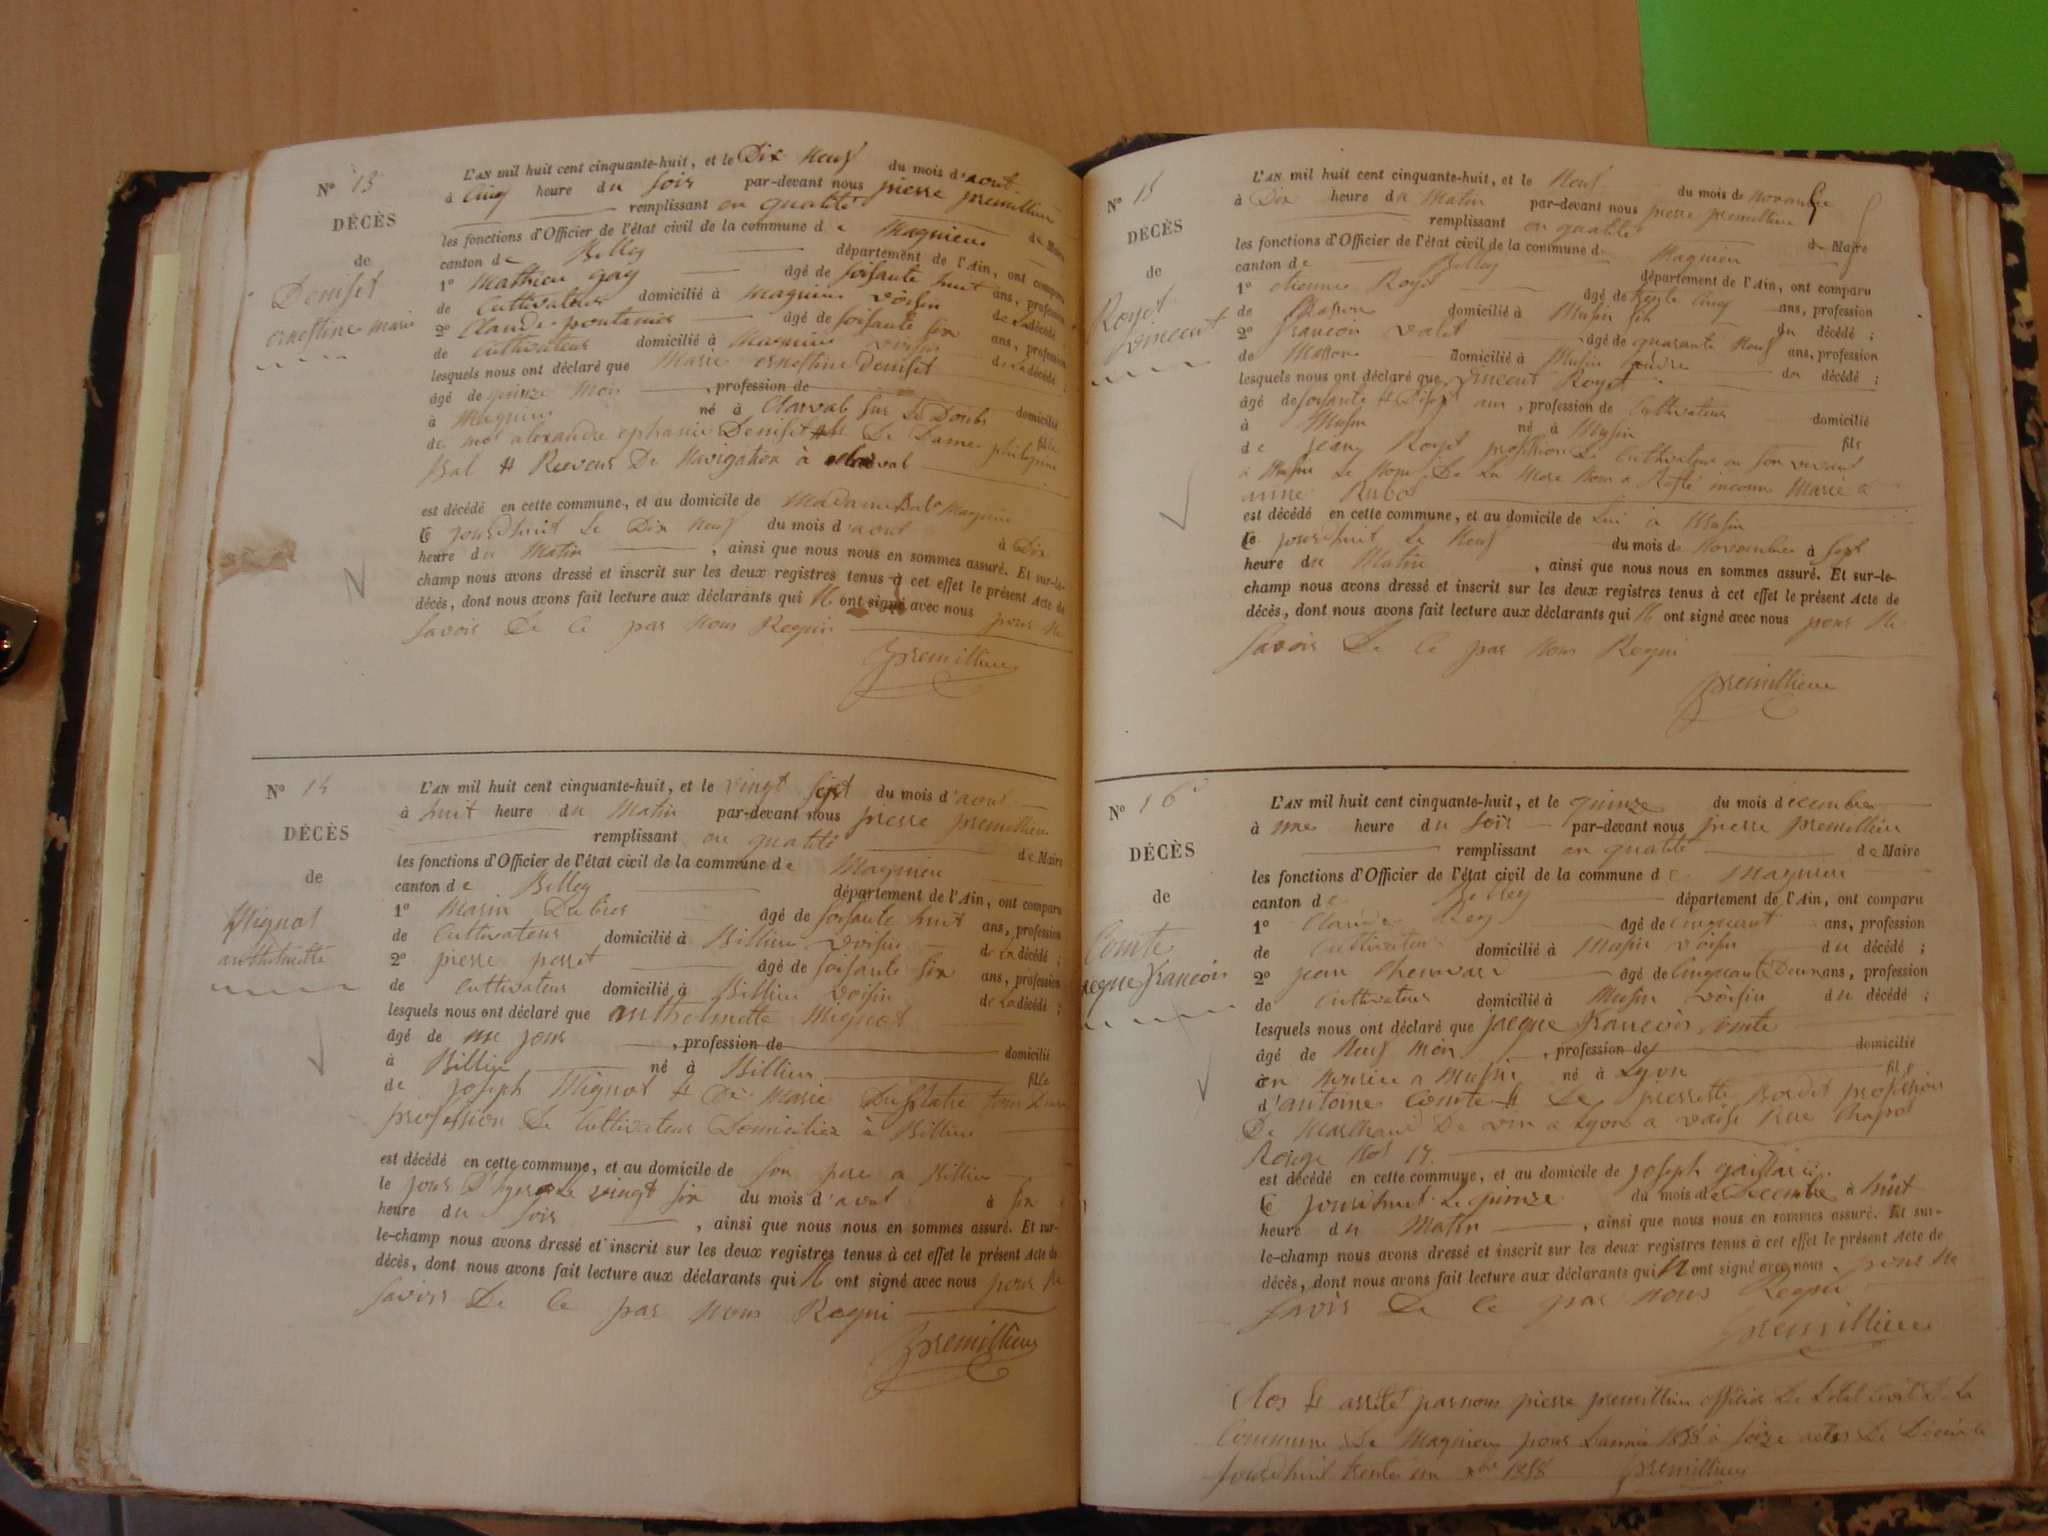 N° 13
DÉCÈS
de
Deniset
ernestine marie
L'AN mil huit cent cinquante-huit, et le Dix Neuf du mois d'aout
à Cinq heure du soir par-devant nous pierre premillieu
remplissant en qualité de Maire
les fonctions d'Officier de l'état civil de la commune de Magnieu
canton de Belley département de l'Ain, ont comparu
1° Mathieu gay âgé de soisante huit ans, profession
de Cultivateur domicilié à Magnieu voisin de La décédé
2° Claude âgé de soisante six ans, profession
de Cultivateur domicilié à Magnieu voisin de La décédé ;
lesquels nous ont déclaré que Marie ernestine Deniset
âgé de quinze mois , profession de domicilié
à Magnieu né à Clerval sur Le Doubs fille
de alexandre Deniset et De Dame philipine
Bal Receveur De Navigation à
est décédé en cette commune, et au domicile de Madame Bal Magnieu
Ce jourdhuit Le Dix Neuf du mois d'aout à Dix
heure du Matin , ainsi que nous nous en sommes assuré. Et sur-le-
champ nous avons dressé et inscrit sur les deux registres tenus à cet effet le présent Acte de
décès, dont nous avons fait lecture aux déclarants qui N ont signé avec nous pour Ne
savoir De Ce par Nous Requi
premillieu
N° 14
DÉCÈS
de
Mignot
anthelmette
L'AN mil huit cent cinquante-huit, et le vingt sept du mois d'aout
à huit heure du Matin par-devant nous pierre premillieu
remplissant en qualité de Maire
les fonctions d'Officier de l'état civil de la commune de Magnieu
canton de Belley département de l'Ain, ont comparu
1° Marin âgé de soisante huit ans, profession
de Cultivateur domicilié à Billieu voisin de La décédé ;
2° pierre perret âgé de soisante six ans, profession
de Cultivateur domicilié à Billieu voisin de La décédé ;
lesquels nous ont déclaré que anthelmette Mignot
âgé de un jour , profession de domicilié
à Billieu né à Billieu fille
de joseph Mignot et De Marie
profession De Cultivateur Domicilier à Billieu
est décédé en cette commune, et au domicile de son pere a Billieu
le jour D'hyer Le vingt six du mois d'aout à six
heure du soir , ainsi que nous nous en sommes assuré. Et sur-
le-champ nous avons dressé et inscrit sur les deux registres tenus à cet effet le présent Acte de
décès, dont nous avons fait lecture aux déclarants qui N ont signé avec nous pour Ne
savoir De Ce par Nous Requi
premillieu
N° 15
DÉCÈS
de
Royet
vincent
L'AN mil huit cent cinquante-huit, et le Neuf du mois de Novembre
à Dix heure du Matin par-devant nous pierre premillieu
remplissant en qualité de Maire
les fonctions d'Officier de l'état civil de la commune de Magnieu
canton de Belley département de l'Ain, ont comparu
1° etienne Royet âgé de trente Cinq ans, profession
de Masson domicilié à Musin fils du décédé ;
2° francois âgé de quarante Neuf ans, profession
de Masson domicilié à Musin du décédé ;
lesquels nous ont déclaré que vincent Royet
âgé de soisante et Disept ans , profession de Cultivateur domicilié
à Musin né à Musin fils
de jean Royet profession De Cultivateur en son vivant
a Musin Le Nom De La Mere Nous a Resté inconnu Marié a
anne
est décédé en cette commune, et au domicile de Lui a Musin
Ce jourdhuit Le Neuf du mois de Novembre à sept
heure du Matin , ainsi que nous nous en sommes assuré. Et sur-le-
champ nous avons dressé et inscrit sur les deux registres tenus à cet effet le présent Acte de
décès, dont nous avons fait lecture aux déclarants qui N ont signé avec nous pour Ne
savoir De Ce par Nous Requi
premillieu
N° 16
DÉCÈS
de
Comte
jacque francois
L'AN mil huit cent cinquante-huit, et le quinze du mois decembre
à une heure du soir par-devant nous pierre premillieu
remplissant en qualité de Maire
les fonctions d'Officier de l'état civil de la commune de Magnieu
canton de Belley département de l'Ain, ont comparu
1° Claude Rey âgé de Cinquant ans, profession
de Cultivateur domicilié à Musin voisin du décédé ;
2° jean âgé de Cinquante Deux ans, profession
de Cultivateur domicilié à Musin voisin du décédé ;
lesquels nous ont déclaré que jacque francois Comte
âgé de Neuf Mois , profession de domicilié
en Nourice a Musin né à Lyon fils
d'antoine Comte et De pierrette profession
De Marchand De vin a Lyon a vaise Rue
Rouge No 17.
est décédé en cette commune, et au domicile de joseph
Ce jourdhuit Le quinze du mois de Decembre à huit
heure du Matin , ainsi que nous nous en sommes assuré. Et sur-
le-champ nous avons dressé et inscrit sur les deux registres tenus à cet effet le présent Acte de
décès, dont nous avons fait lecture aux déclarants qui N ont signé avec nous pour Ne
savoir De Ce par Nous Requi
premillieu
Clos et arrêté par nous pierre premillieu officier De Letat Civil De La
Commune De Magnieu pour Lannée 1858 a seize actes De Décès Ce
jourdhuit trente un xbre 1858 premillieu